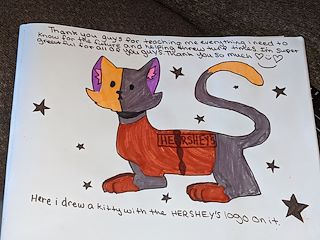 Thank you guys for teaching me everything i need to
know for the future and helping threw tuff times I'm super
greatful for all of you guys. Thank you so much
HERSHEY'S
Here i drew a kitty with the HERSHEY'S logo on it.